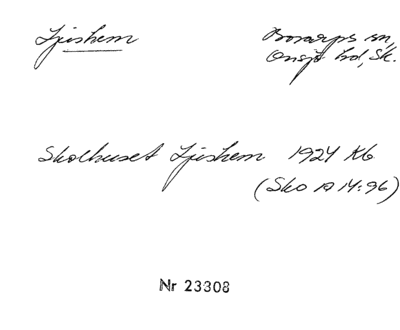 Ljushem
Bosarps sn,
Onsjö hd, Sk.
Skolhuset Ljushem 1924 Kb
(Sko A 14:96)
Nr 23308